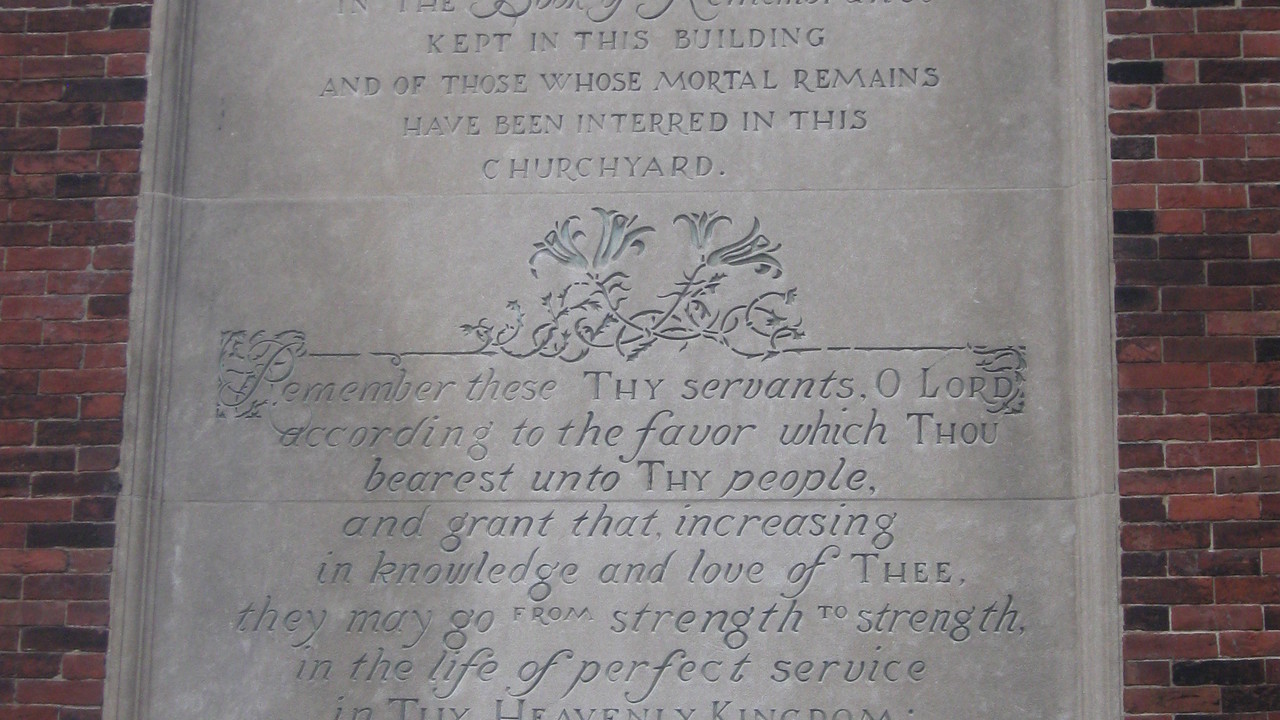 IN THE Book of Remembrance
KEPT IN THIS BUILDING
AND OF THOSE WHOSE MORTAL REMAINS
HAVE BEEN INTERRED IN THIS
CHURCHYARD.
Remember these THY servants, O LORD
according to the favor which THOU
bearest unto THY people,
and grant that, increasing
in knowledge and love of THEE,
they may go FROM strength TO strength,
in the life of perfect service
in THY HEAVENLY KINGDOM;